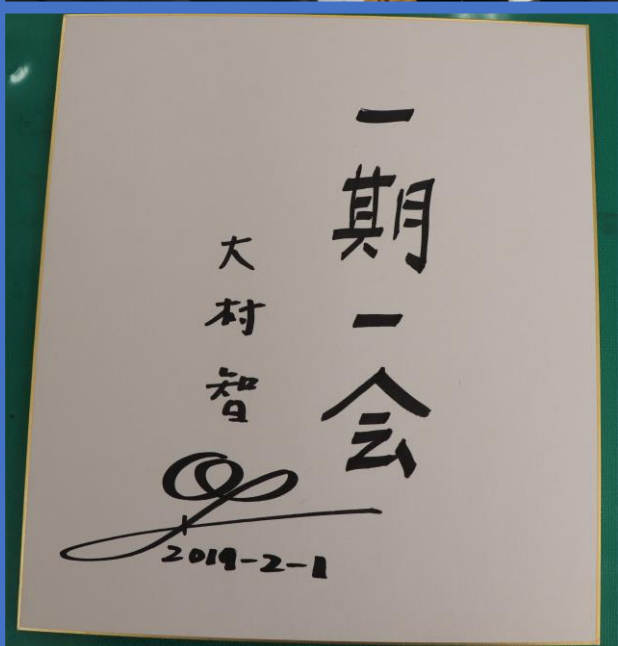 一期一会
大村智
2019-2-1